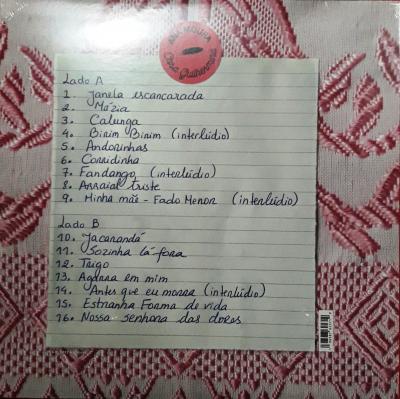 Casa Guilhermina
Lado A
1. Janela escancarada
2. Mázia
3. Calunga
4. Birim Birim (interlúdio)
5. Andorinhas
6. Corridinho
7. Fandango (interlúdio)
8. Arraial triste
9. Minha mãe - Fado Menor (interlúdio)
Lado B
10. Jacarandá
11. Sozinha lá fora
12. Trigo
13. Agarra em mim
14. Antes que eu morra (interlúdio)
15. Estranha Forma de vida
16. Nossa senhora das dores